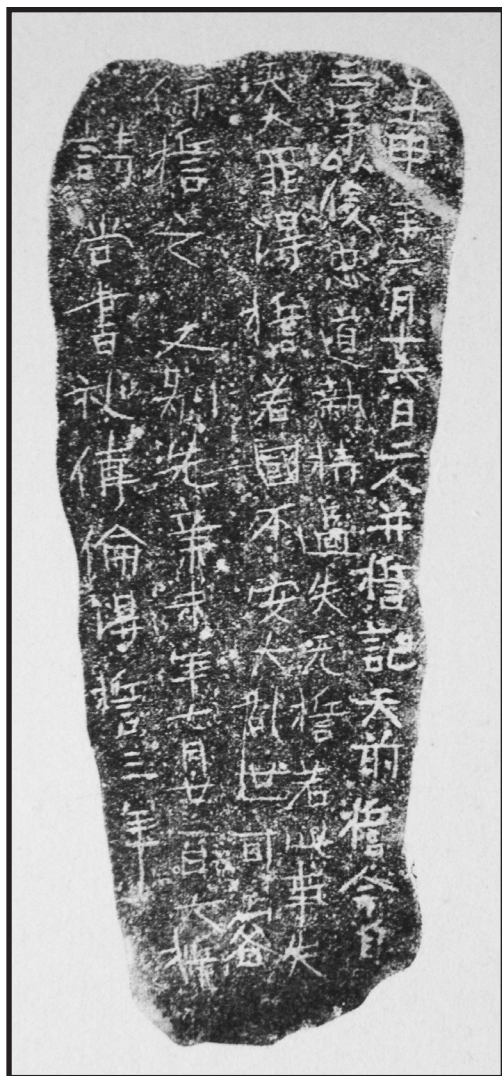 壬申年六月十六日二人并誓記天前誓今自
三年以後忠道執持過失无誓若此事失
天大罪得誓若國不安大乱世可容
行誓之 又別先辛未年七月廿二日大誓
詩尚書礼傳倫得誓三年